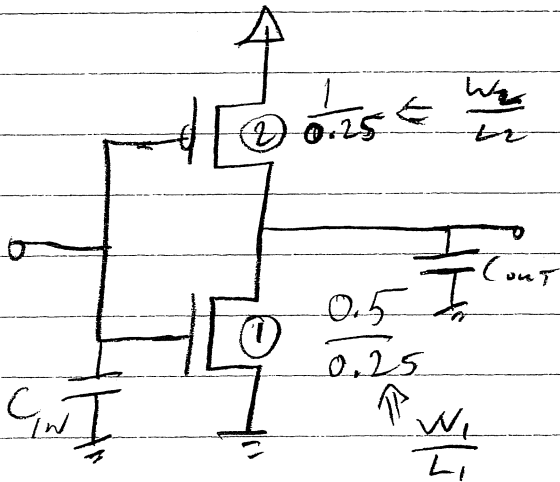 ② 1/0.25 ⇐ W2/L2
Cout
① 0.5/0.25
⇑
W1/L1
CIN